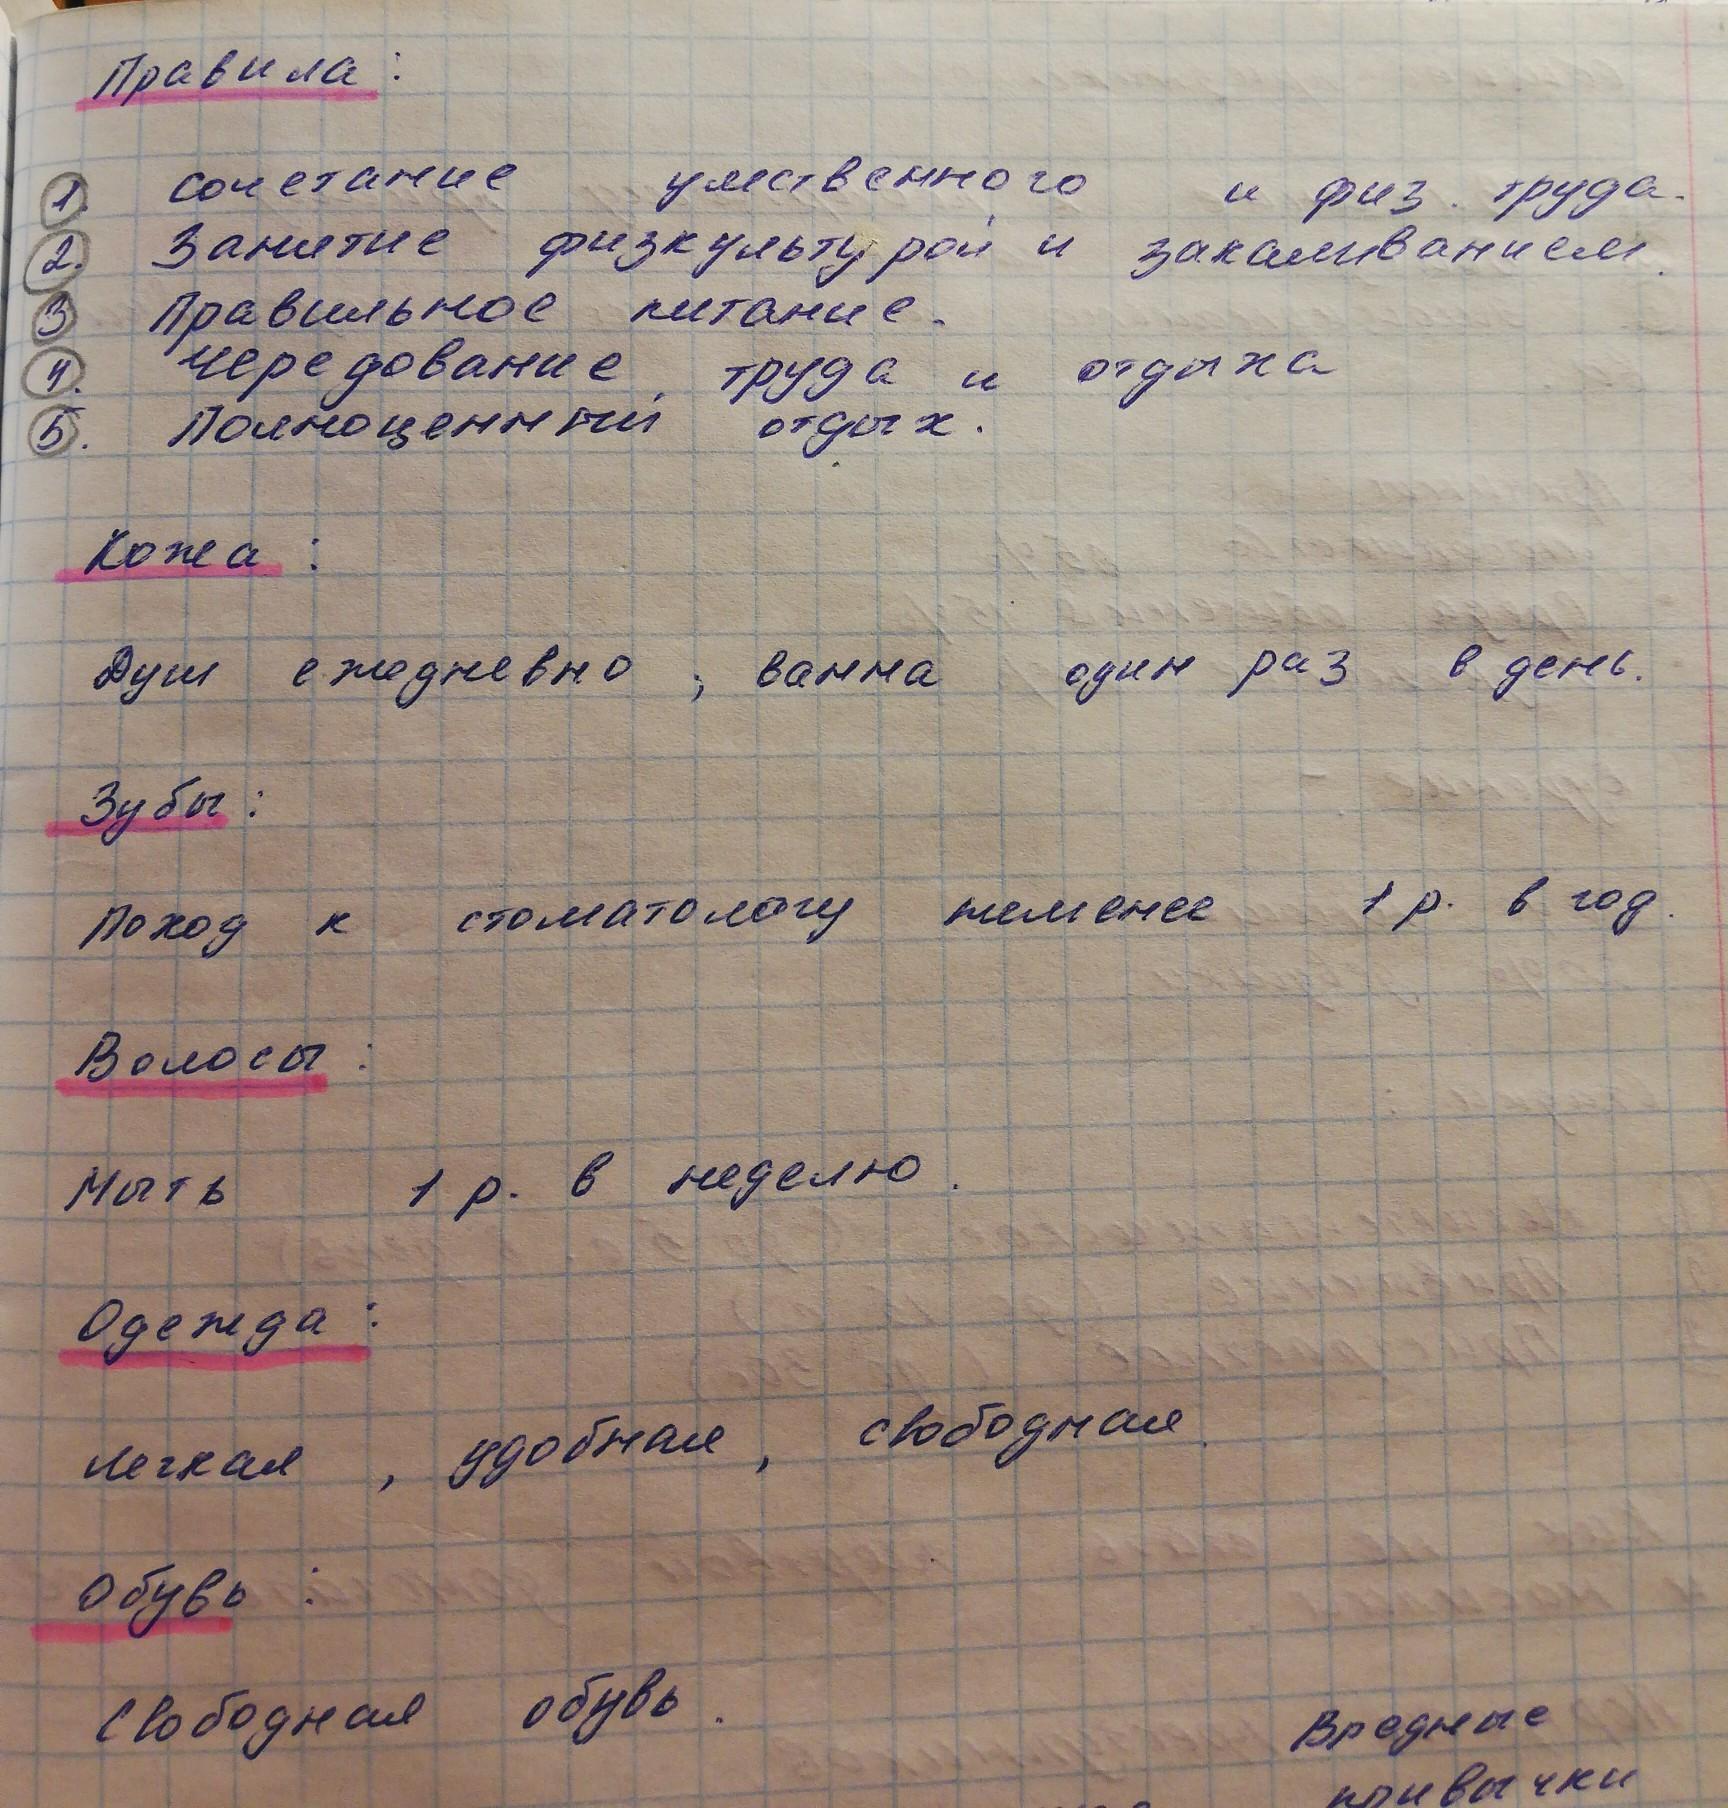 Правила:
1. Сочетание умственного и физ. труда.
2. Занятие физкультурой и закаливанием.
3 Правильное питание.
4. Чередование труда и отдыха
5. Полноценный отдых.
Кожа:
Душ ежедневно, ванна один раз в день.
Зубы:
Поход к стоматологу неменее 1 р. в год.
Волосы:
Мыть 1 р. в неделю.
Одежда:
Легкая, удобная, свободная.
Обувь:
Свободная обувь.
Вредные
привычки